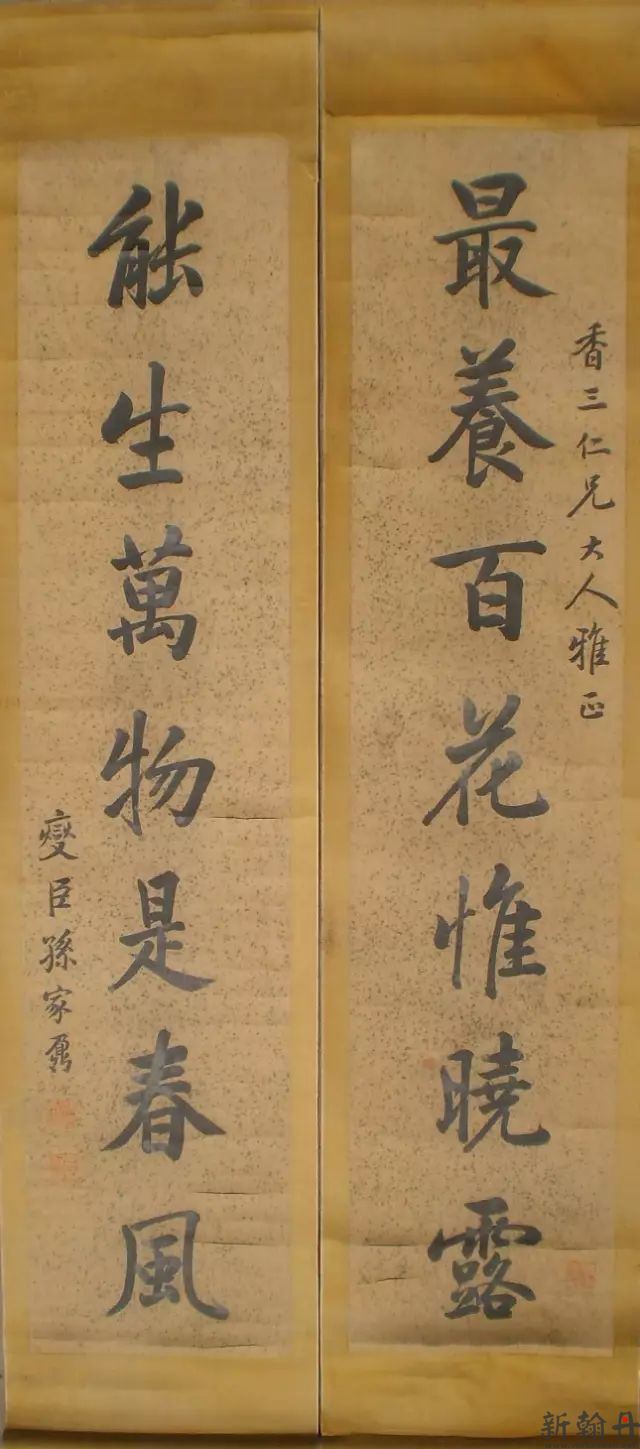 最養百花惟曉露
香三仁兄大人雅正
能生萬物是春風
燮臣孫家鼐
新翰丹